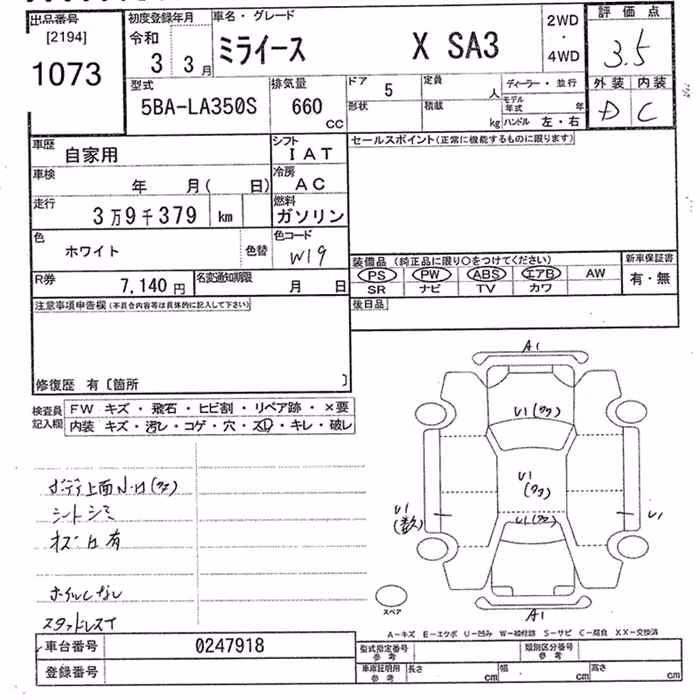 出品番号
[2194]
1073
初度登録年月
令和
3 3月
車名・グレード
ミライース X SA3
2WD
・
4WD
評価点
3.5
外装 内装
D C
型式
5BA-LA350S
排気量
660
CC
ドア 5
形状
定員 人
積載 kg
ディーラー・並行
モデル年式 年
ハンドル 左・右
車歴
自家用
シフト
IAT
車検
年 月( 日)
冷房
AC
走行
3万9千379 km
燃料
ガソリン
色
ホワイト
色替
色コード
W19
R券
7,140円
名変通知期限
月 日
セールスポイント(正常に機能するものに限ります)
装備品 (純正品に限り○をつけてください)
新車保証書
PS PW ABS エアB AW
SR ナビ TV カワ
有・無
後日品
注意事項申告欄(不具合内容等は具体的に記入して下さい)
修復歴 有〔箇所 〕
検査員
記入欄
FW キズ・飛石・ヒビ割・リペア跡・×要
内装 キズ・汚レ・コゲ・穴・スレ・キレ・破レ
シートシミ
有
ホイルなし
スタッドレス
A1
U1
U1
U1
U1
U1
A1
スペア
A-キズ E-エクボ U-凹み W-補修跡 S-サビ C-腐食 XX-交換済
車台番号 0247918
登録番号
型式指定番号
参考
類別区分番号
参考
車庫証明用
参考
長さ cm 幅 cm 高さ cm